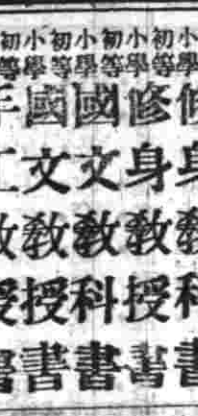 小學修身教科書
初等小學修身教授書
初等小學國文教科書
初等小學國文教授書
初等手工教授書